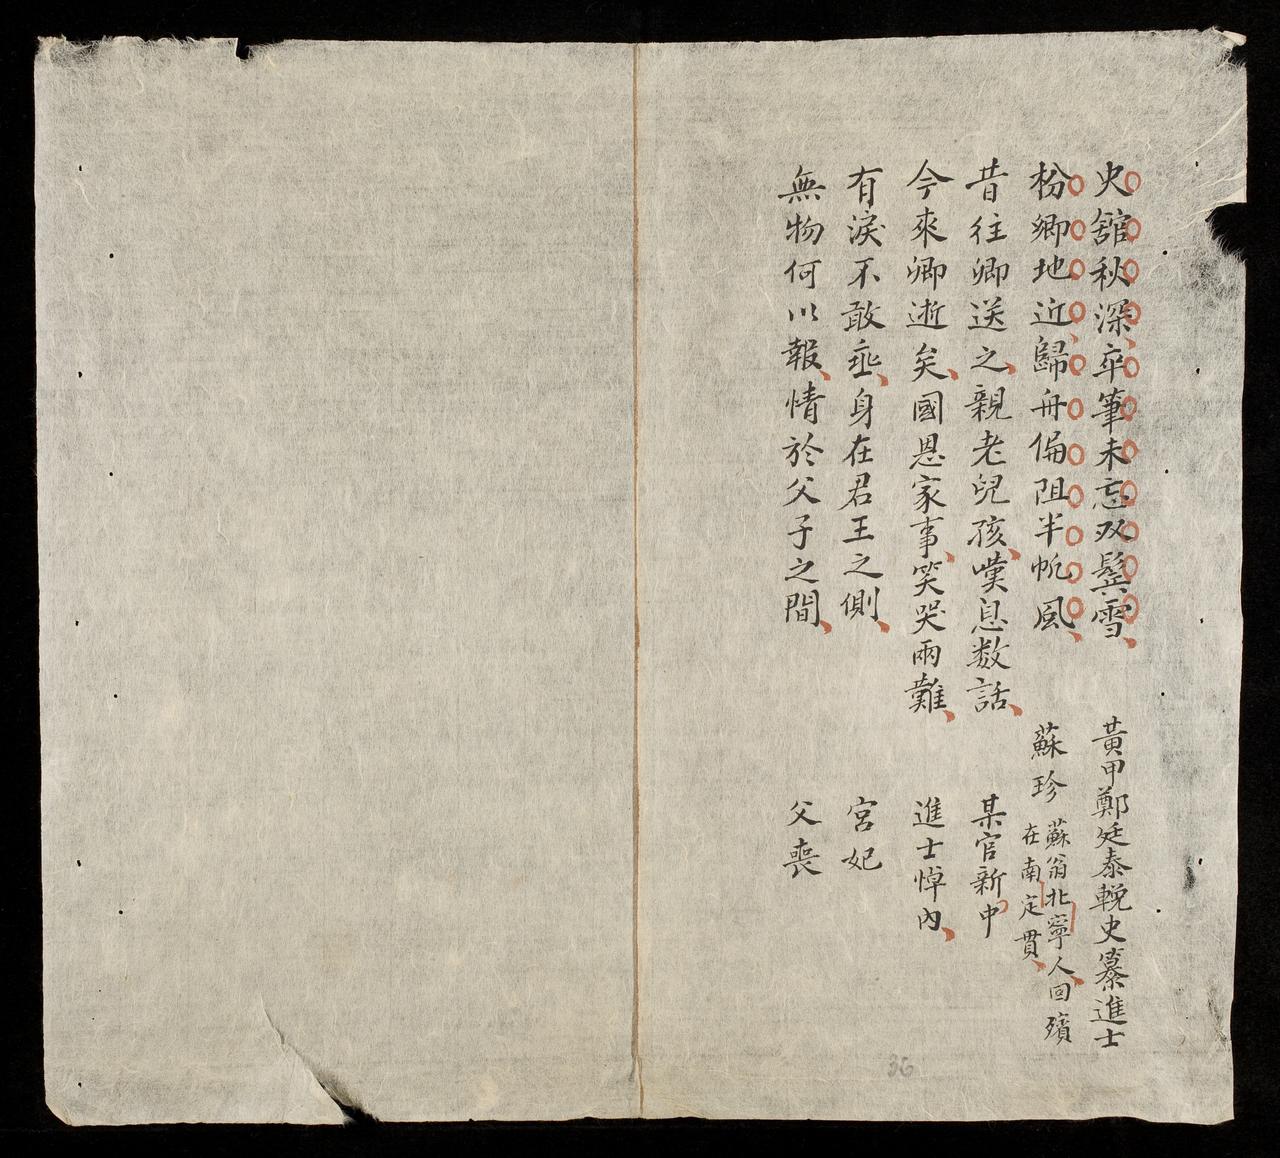 史舘秋深卒筆未忘双鬓雪 黃甲鄭廷泰輓史纂進士
枌卿地近歸舟偏阻半帆風 蘇珍 蘇翁北寧人回殯
在南定貫
昔往卿送之親老兒孩嘆息数話 某官新中
今來卿逝矣國恩家事笑哭兩難 進士悼內
有淚不敢垂身在君王之側 宮妃
無物何以報情於父子之間 父喪
36